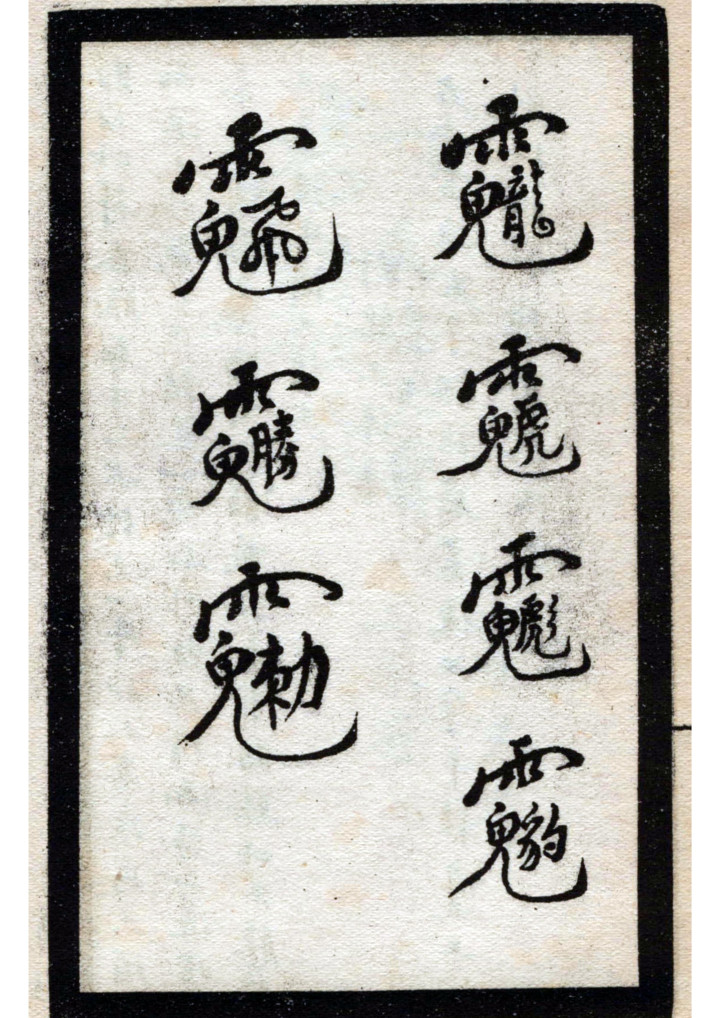 ⿱雨⿺鬼龍⿱雨⿺鬼虎⿱雨⿺鬼彪⿱雨⿺鬼豹
⿱雨⿺鬼飛⿱雨⿺鬼勝⿱雨⿺鬼勅